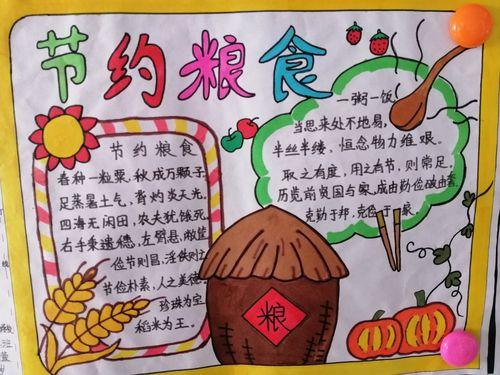 节约粮食
一粥一饭
当思来处不地易，
半丝半缕，恒念物力维艰。
取之有度，用之有节，则常足。
历览前贤国与家，成由勤俭破由奢。
克勤于邦，克俭于家。
节约粮食
春种一粒粟，秋成万颗子。
足蒸暑土气，背灼炎天光。
四海无闲田，农夫犹饿死。
右手秉遗穗，左臂悬敝筐
俭节则昌，淫佚则亡
节俭朴素，人之美德
珍珠为宝
稻米为王。
粮